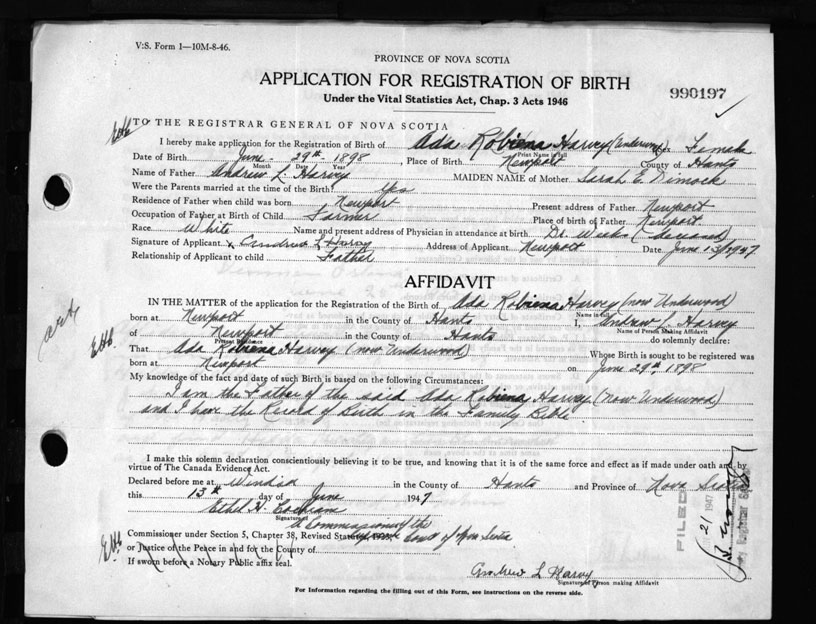 V.S. Form 1—10M-8-46.
PROVINCE OF NOVA SCOTIA
APPLICATION FOR REGISTRATION OF BIRTH
990197
Under the Vital Statistics Act, Chap. 3 Acts 1946
TO THE REGISTRAR GENERAL OF NOVA SCOTIA
I hereby make application for the Registration of Birth of Ada Robiena Harvey (Underwood) Sex Female
Print Name in full
Date of Birth June 29th 1898, Place of Birth Newport County of Hants
Month Date Year
Name of Father Andrew L. Harvey MAIDEN NAME of Mother Sarah E. Dimock
Were the Parents married at the time of the Birth? Yes
Residence of Father when child was born Newport Present address of Father Newport
Occupation of Father at Birth of Child Farmer Place of birth of Father Newport
Race White Name and present address of Physician in attendance at birth Dr. Weeks (deceased)
Signature of Applicant x Andrew L Harvey Address of Applicant Newport Date June 13/1947
Relationship of Applicant to child Father
AFFIDAVIT
IN THE MATTER of the application for the Registration of the Birth of Ada Robiena Harvey (now Underwood)
Name in full
born at Newport in the County of Hants I, Andrew L. Harvey
Name of Person Making Affidavit
of Newport in the County of Hants do solemnly declare:
Present Residence
That Ada Robiena Harvey (now Underwood) Whose Birth is sought to be registered was
born at Newport on June 29th 1898
My knowledge of the fact and date of such Birth is based on the following Circumstances:
I am the Father of the said Ada Robiena Harvey (now Underwood)
and I have the Record of Birth in the Family Bible.
I make this solemn declaration conscientiously believing it to be true, and knowing that it is of the same force and effect as if made under oath and by
virtue of The Canada Evidence Act.
Declared before me at Windsor in the County of Hants and Province of Nova Scotia
this 13th day of June 1947
Ethel H. Cochrane
Signature of
A Commissioner of the
Commissioner under Section 5, Chapter 38, Revised Statutes 1923, Supreme Court of Nova Scotia
or Justice of the Peace in and for the County of
If sworn before a Notary Public affix seal.
Andrew L Harvey
Signature of Person making Affidavit
For Information regarding the filling out of this Form, see instructions on the reverse side.
FILED
21 1947